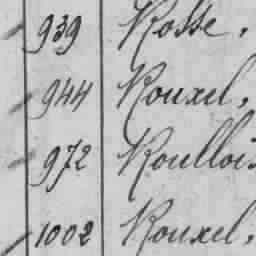 939 Rosse,
944 Rouxel,
972 Roullois
1002 Rouxel,